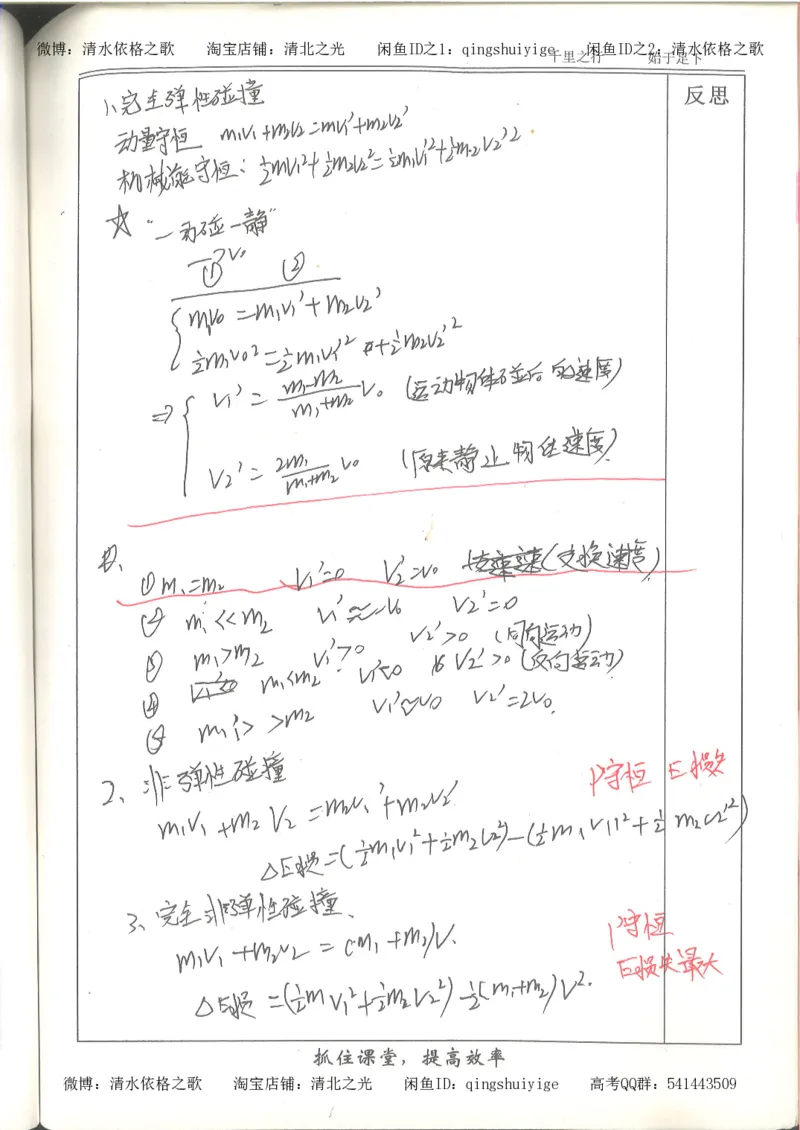 微博：清水依格之歌 淘宝店铺：清北之光 闲鱼ID之1：qingshuiyige 闲鱼ID之2：清水依格之歌
千里之行 始于足下
反思
1、完全弹性碰撞
动量守恒 m₁v₁+m₂v₂=m₁v₁'+m₂v₂'
机械能守恒：½m₁v₁²+½m₂v₂²=½m₁v₁'²+½m₂v₂'²
☆ "一动碰一静"
① v₀ ②
m₁v₀=m₁v₁'+m₂v₂'
½m₁v₀²=½m₁v₁'²+½m₂v₂'²
⇒ v₁'=(m₁-m₂)/(m₁+m₂) v₀ (运动物体碰后的速度)
v₂'=2m₁/(m₁+m₂) v₀ (原来静止物体速度)
① m₁=m₂ v₁'=0 v₂'=v₀ (交换速度)
② m₁<<m₂ v₁'≈-v₀ v₂'=0
③ m₁>m₂ v₁'>0 v₂'>0 (同向运动)
④ m₁<m₂ v₁'<0 v₂'>0 (反向运动)
⑤ m₁>>m₂ v₁'≈v₀ v₂'=2v₀
2、非弹性碰撞
P守恒 E损失
m₁v₁+m₂v₂=m₂v₁'+m₂v₂'
△E损=(½m₁v₁²+½m₂v₂²)-(½m₁v₁'²+½m₂v₂'²)
3、完全非弹性碰撞、
P守恒
m₁v₁+m₂v₂=(m₁+m₂)v.
E损失最大
△E损=(½m₁v₁²+½m₂v₂²)-½(m₁+m₂)v².
抓住课堂，提高效率
微博：清水依格之歌 淘宝店铺：清北之光 闲鱼ID：qingshuiyige 高考QQ群：541443509